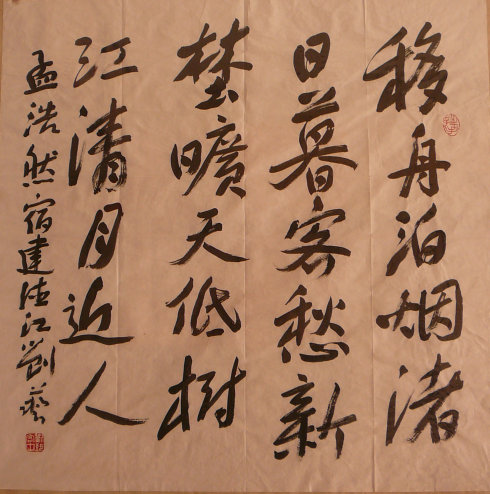 移舟泊烟渚
日暮客愁新
埜曠天低樹
江清月近人
孟浩然宿建德江劉藝